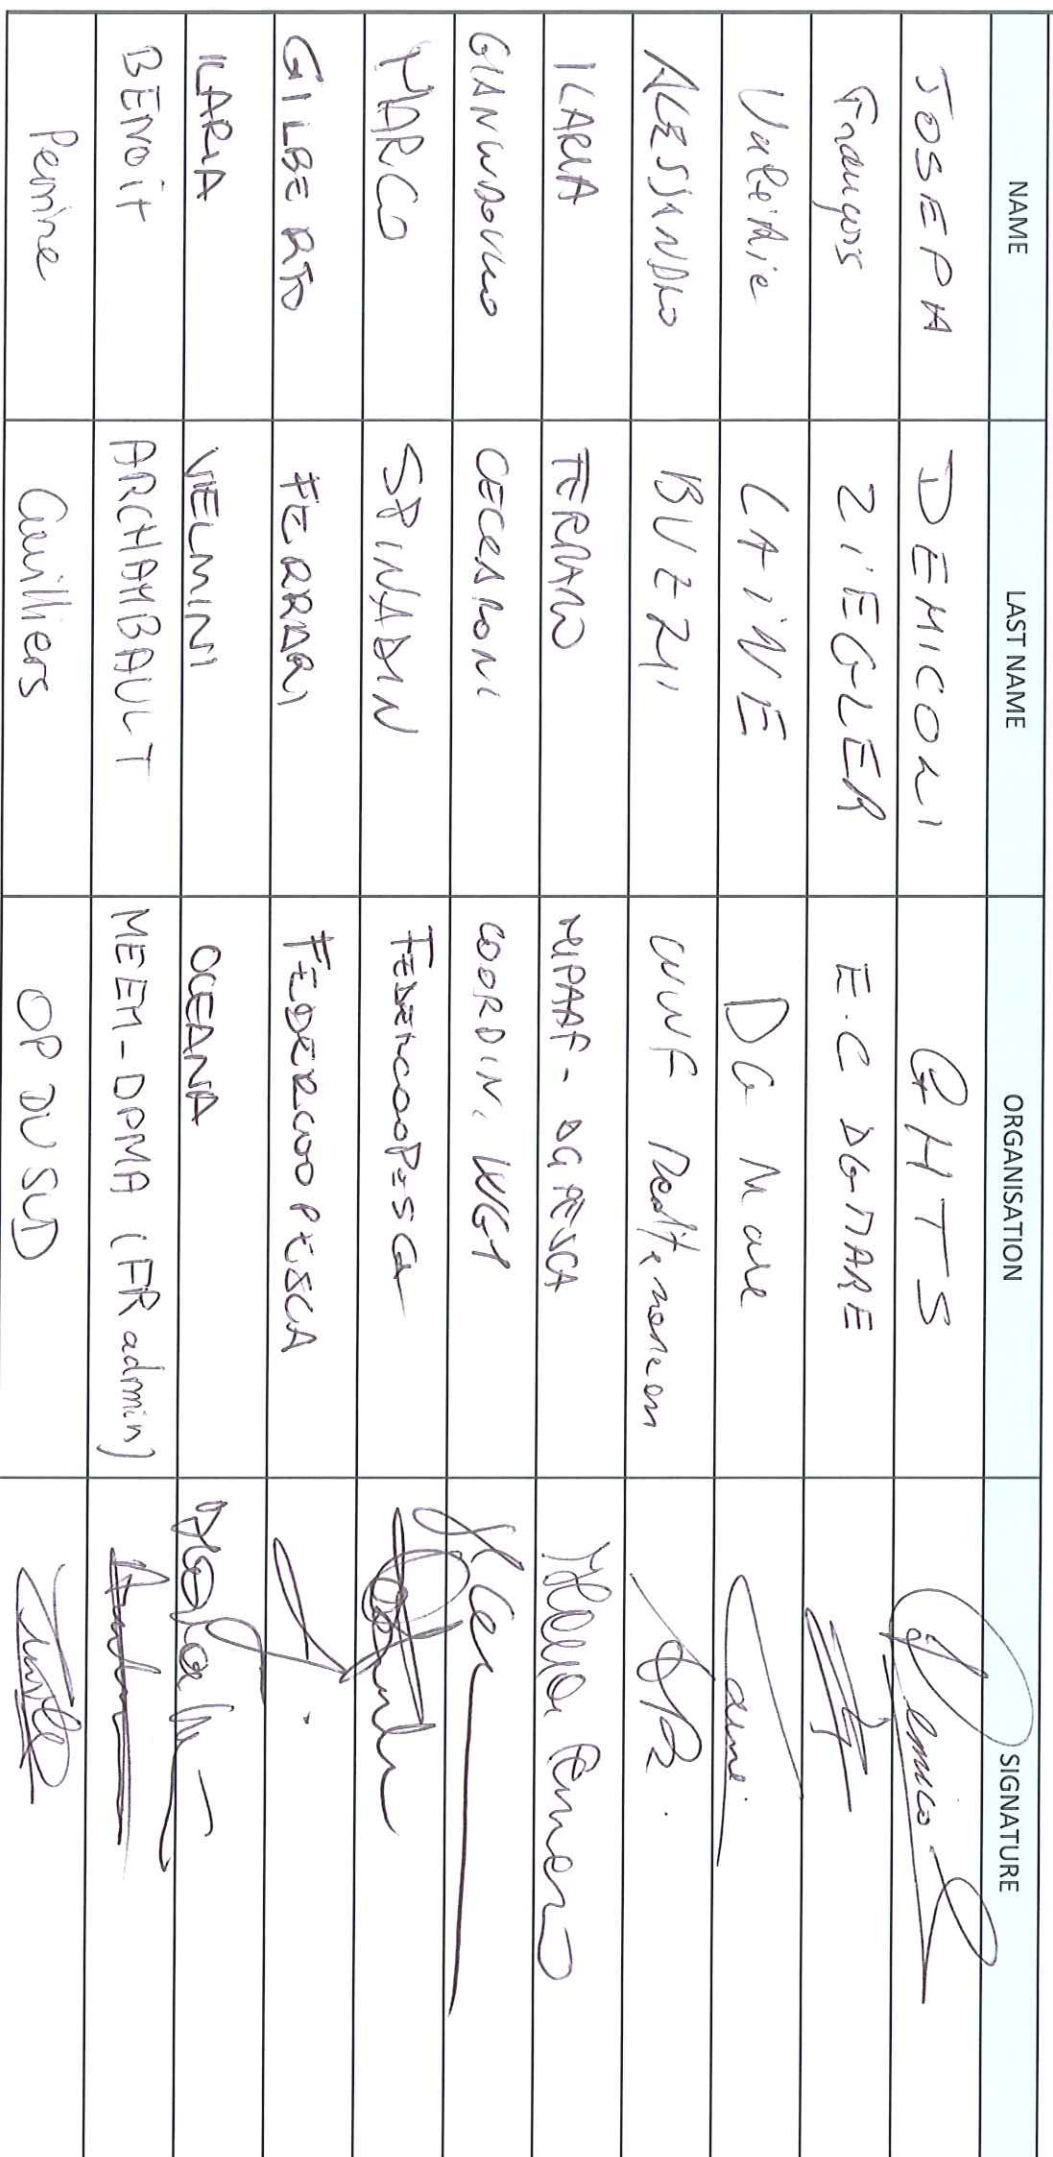 NAME LAST NAME ORGANISATION SIGNATURE
JOSEPH DEMICOLI GHTS
François ZIEGLER E.C DG MARE
Valérie LAINE DG Mare
ALESSANDRO BUZZI WWF Mediterranean
ILARIA FERRARO MIPAAF - DG PESCA
GIANLUDOVICO CECCARONI COORDIN. WG1
MARCO SPINADIN FEDERCOOPESCA
GILBERTO FERRARI FEDERCOOPESCA
ILARIA VIELMINI OCEANA
BENOIT ARCHAMBAULT MEEM-DPMA (FR admin)
Perrine Cuilliers OP DU SUD